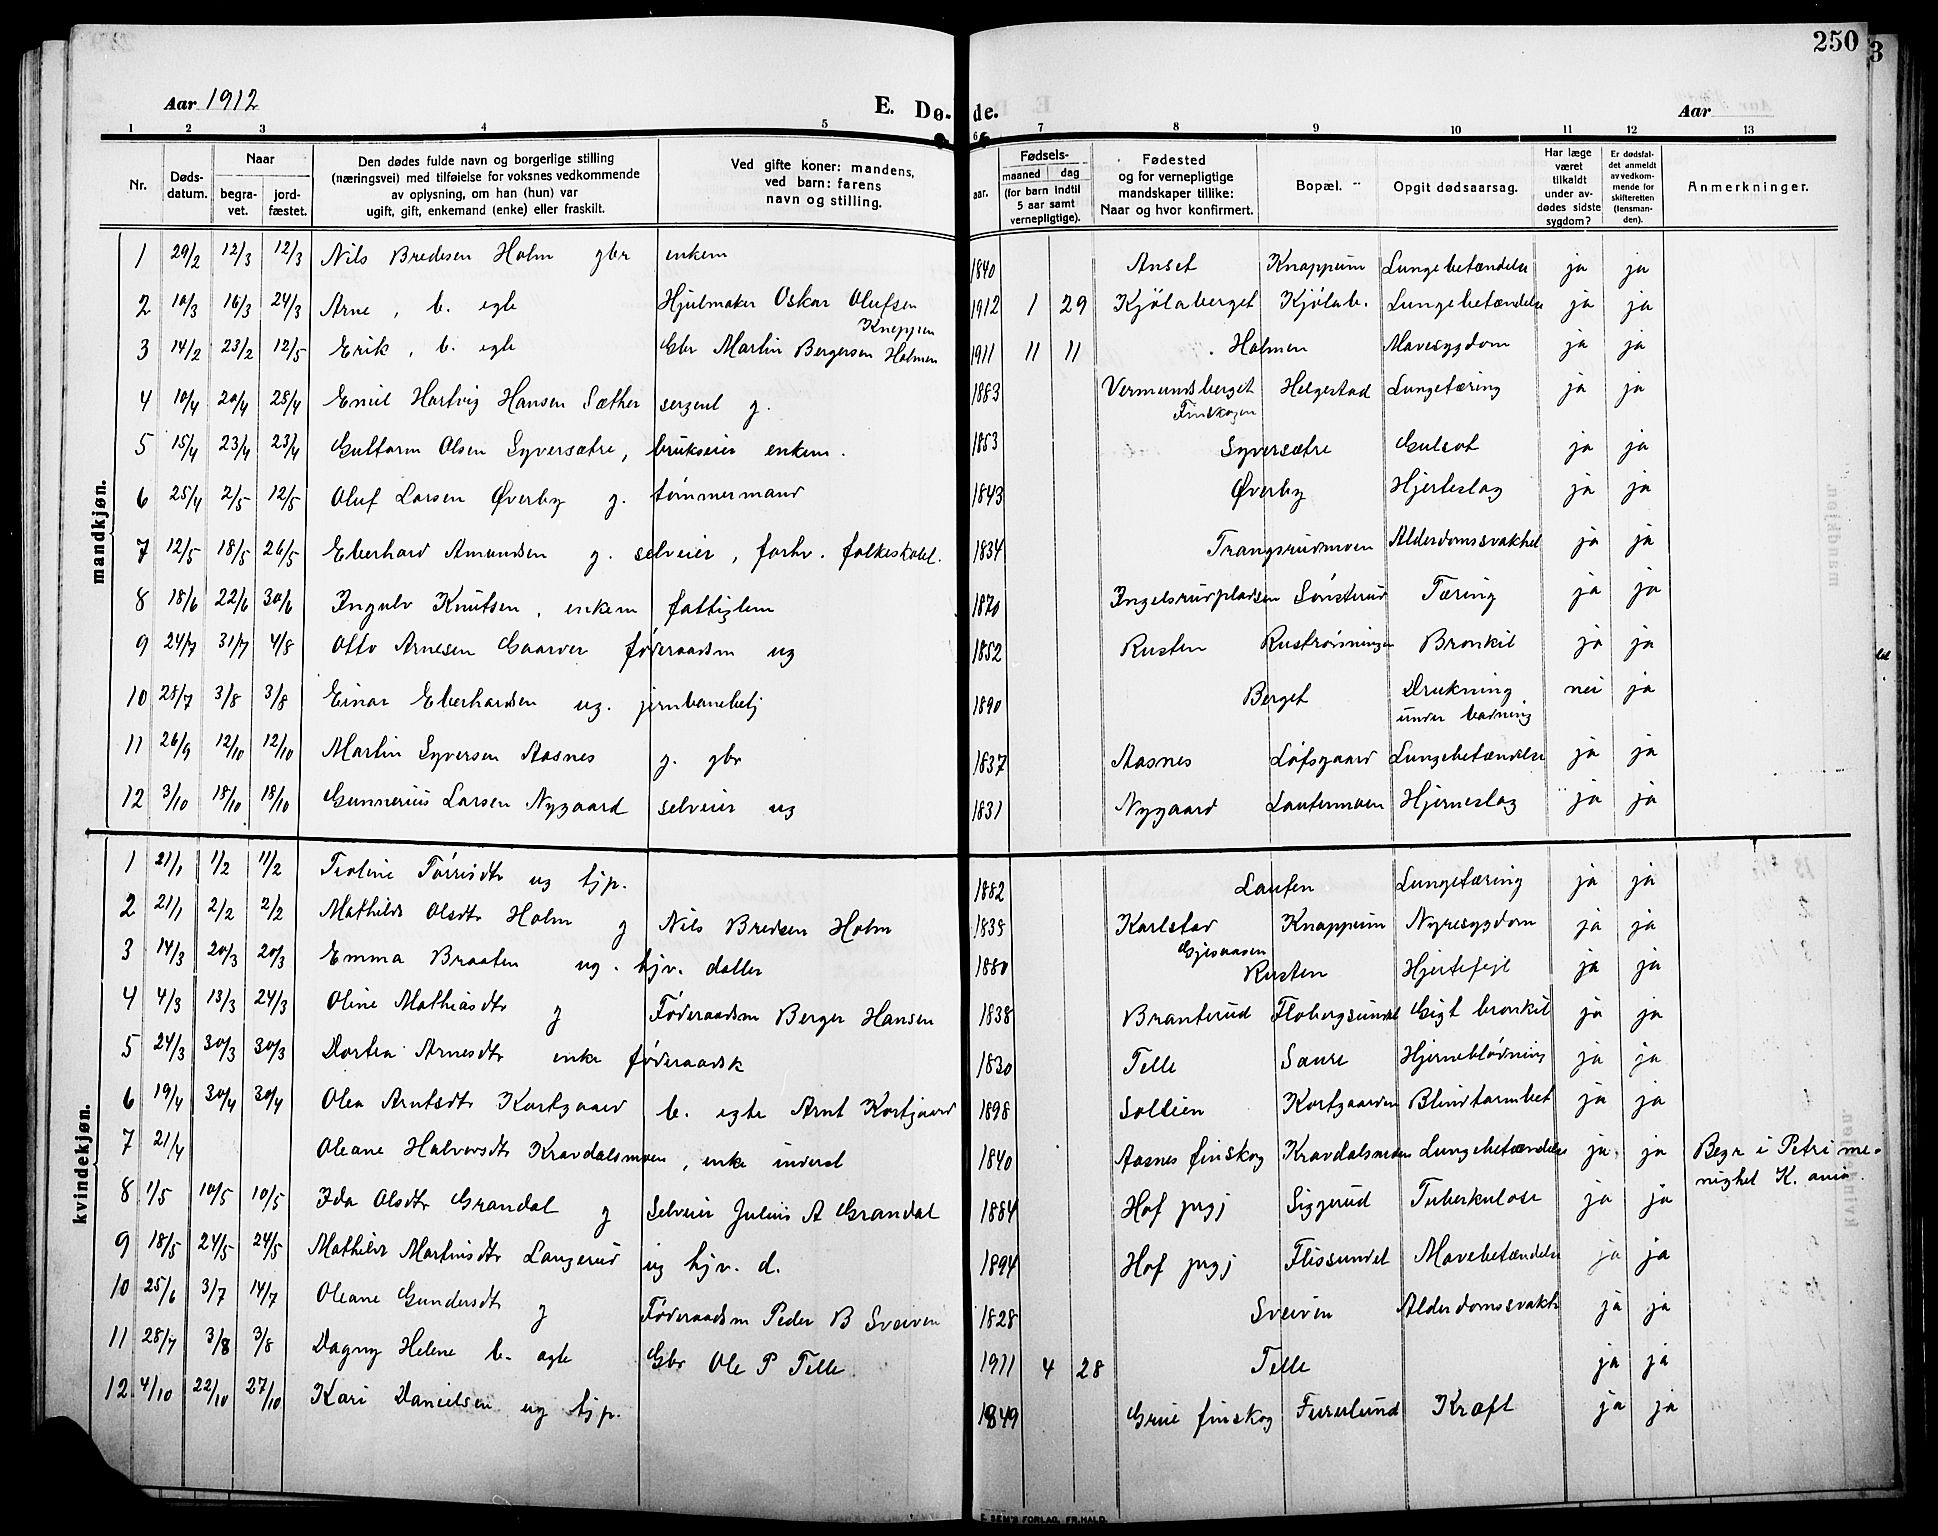 250
3
Aar 1912
E. Dø-
de.
Aar
1 2 3 4 5 6 7 8 9 10 11 12 13
Nr.
Døds-
datum.
Naar
begra-
vet.
jord-
fæstet.
Den dødes fulde navn og borgerlige stilling
(næringsvei) med tilføielse for voksnes vedkommende
av oplysning, om han (hun) var
ugift, gift, enkemand (enke) eller fraskilt.
Ved gifte koner: mandens,
ved barn: farens
navn og stilling.
aar.
Fødsels-
maaned dag
(for barn indtil
5 aar samt
vernepligtige).
Fødested
og for vernepligtige
mandskaper tillike:
Naar og hvor konfirmert.
Bopæl.
Opgit dødsaarsag.
Har læge
været
tilkaldt
under av-
dødes sidste
sygdom?
Er dødsfal-
det anmeldt
av vedkom-
mende for
skifteretten
(lensman-
den).
Anmerkninger.
mandkjøn.
1 29/2 12/3 12/3 Nils Bredesen Holm gbr enkem 1840 Anset Knappum Lungebetændelse ja ja
2 10/3 16/3 24/3 Arne, b. egte Hjulmaker Oskar Olufsen 1912 1 29 Kjølaberget Kjølab. Lungebetændelse ja ja
Knappen
3 14/2 23/2 12/5 Erik, b. egte Gbr Martin Bergersen Holmen 1911 11 11 Holmen Mavesygdom ja ja
4 10/4 20/4 28/4 Emil Hartvig Hansen Sæther sergent g. 1883 Vermundsberget Helgestad Lungetæring ja ja
Finskogen
5 15/4 23/4 23/4 Guttorm Olsen Syversætre, brukseier enkem. 1853 Syversætre Gulsot ja ja
6 25/4 2/5 12/5 Oluf Larsen Øverby g. tømmermand 1843 Øverby Hjerteslag ja ja
7 12/5 18/5 26/5 Eberhard Amundsen g. selveier, forhv. folkeskolel. 1834 Trangsrudmoen Alderdomssvakhet ja ja
8 18/6 22/6 30/6 Ingulv Knutsen, enkem fattiglem 1870 Ingelsrudpladsen Sønsterud Tæring ja ja
9 24/7 31/7 4/8 Otto Arnesen Gaarder føderaadsm ug 1852 Rusten Rustrøsningen Bronkit ja ja
10 28/7 3/8 3/8 Einar Eberhardsen ug. jernbanebetj 1890 Berget Drukning nei ja
under badning
11 26/9 12/10 12/10 Martin Syversen Aasnes g. gbr 1837 Aasnes Løfsgaard Lungebetændelse ja ja
12 3/10 18/10 18/10 Gunnerius Larsen Nygaard selveier ug 1831 Nygaard Lautermoen Hjerneslag ja ja
kvindekjøn.
1 21/1 1/2 11/2 Teoline Tørrisdtr ug tjp. 1882 Lauten Lungetæring ja ja
2 21/1 2/2 2/2 Mathilde Olsdtr Holm g Nils Bredsen Holm 1838 Karlstad Knappum Nyresygdom ja ja
Gjesaasen
3 14/3 20/3 20/3 Emma Braaten ug. hjv. datter 1880 Rusten Hjertefeil ja ja
4 4/3 13/3 24/3 Oline Mathiasdtr g Føderaadsm Berger Hansen 1838 Branterud Flobergsundet Gigt bronkit ja ja
5 24/3 30/3 30/3 Dortea Arnesdtr enke føderaadsk 1830 Telle Saure Hjerneblødning ja ja
6 19/4 30/4 30/4 Olea Arntsdtr Kortgaard b. egte Arnt Kortgaard 1898 Sollien Kortgaarden Blindtarmbet ja ja
7 21/4 Oleane Halvorsdtr Kravdalsmoen, enke inderst 1840 Aasnes finskog Kravdalsmoen Lungebetændelse ja ja Begr i Petri me-
nighet K. ania.
8 1/5 10/5 10/5 Ida Olsdtr Grandal g Selveier Julius A Grandal 1884 Hof prgj Siggerud Tuberkulose ja ja
9 18/5 24/5 24/5 Mathilde Martinsdtr Langerud ug hjv. d. 1894 Hof prgj Flissundet Mavebetændelse ja ja
10 25/6 3/7 14/7 Oleane Gundersdtr g Føderaadsm Peder B Sveiven 1828 Sveiven Alderdomssvakh ja ja
11 28/7 3/8 3/8 Dagny Helene b. egte Gbr Ole P Telle 1911 4 28 Telle ja ja
12 4/10 22/10 27/10 Kari Danielsen ug tjp. 1849 Grue finskog Furulund Kræft ja ja
E. SEM'S FORLAG, FR.HALD.